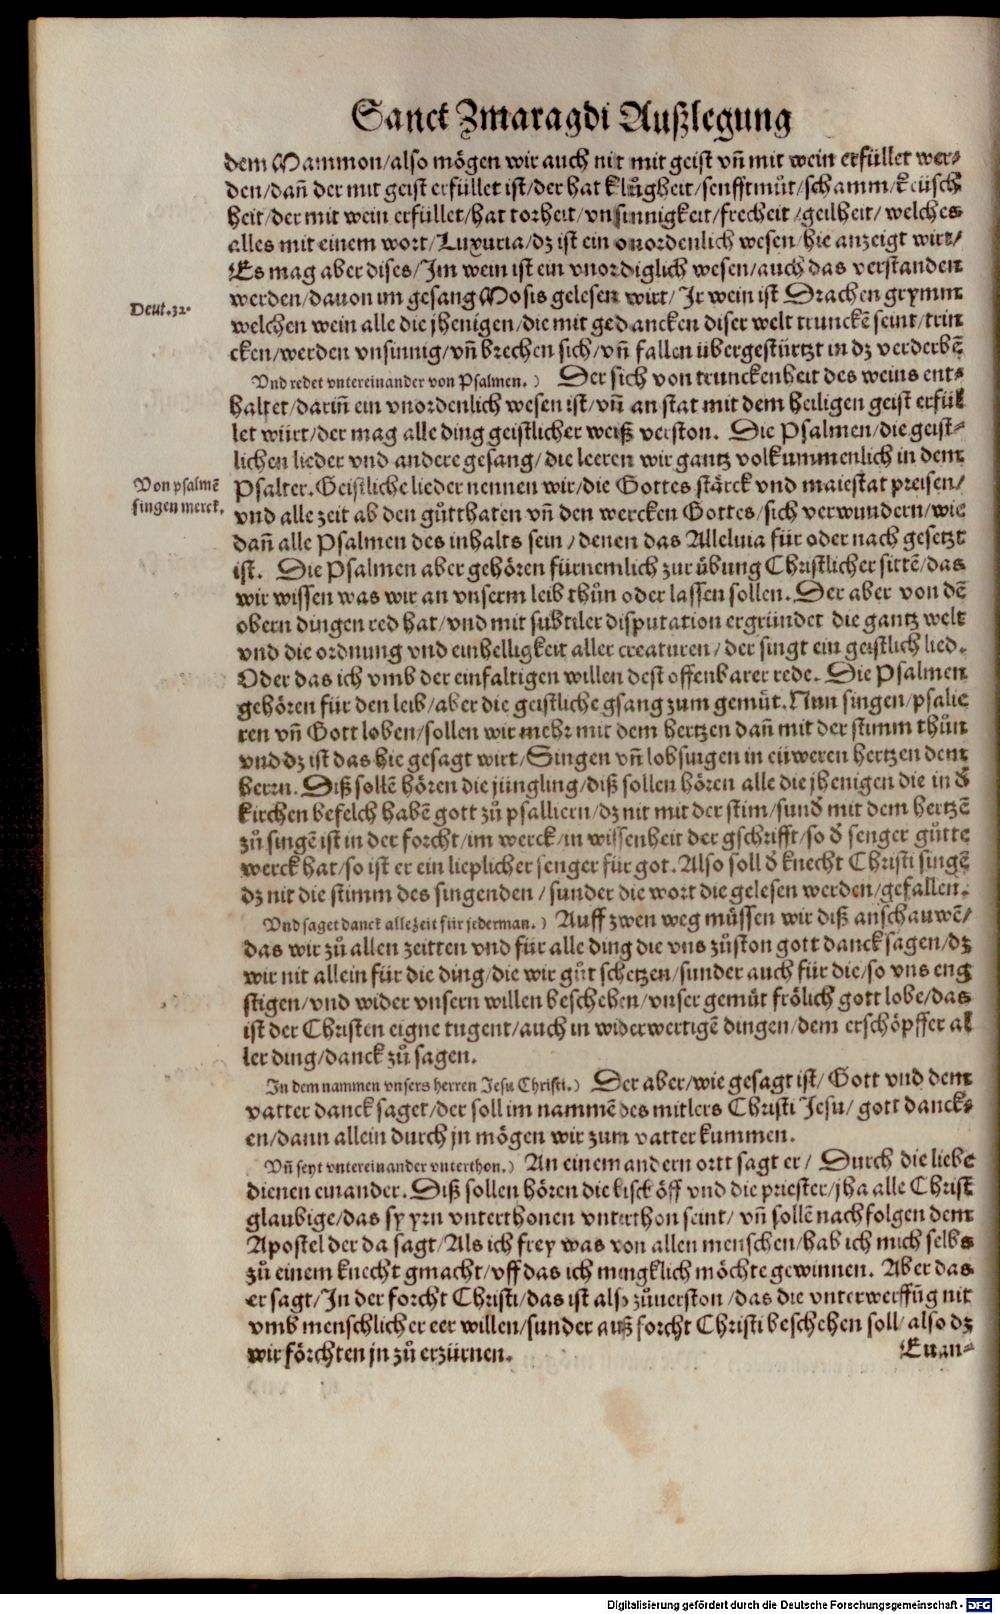 Sanct Zmaragdi Außlegung
dem Mammon/also mögen wir auch nit mit geist vñ mit wein erfüllet wer-
den/dañ der mit geist erfüllet ist/der hat klůgheit/senfftmůt/schamm/keüsch
heit/der mit wein erfüllet/hat torheit/vnsinnigkeit/frecheit/geilheit/welches
alles mit einem wort/Luxuria/dz ist ein onordenlich wesen/hie anzeigt wirt/
Es mag aber dises/Im wein ist ein vnordiglich wesen/auch das verstanden
werden/dauon im gesang Mosis gelesen wirt/Ir wein ist Drachen grymm
Deut.32.
welchen wein alle die jhenigen/die mit gedancken diser welt trunckẽ seint/trin
cken/werden vnsinnig/vñ brechen sich/vñ fallen übergestürtzt in dz verderbẽ
Vnd redet vntereinander von Psalmen.) Der sich von trunckenheit des weins ent-
haltet/dariñ ein vnordenlich wesen ist/vñ an stat mit dem heiligen geist erfül
let würt/der mag alle ding geistlicher weiß verston. Die Psalmen/die geist-
lichen lieder vnd andere gesang/die leeren wir gantz volkummenlich in dem
Von psalmẽ
singen merck.
Psalter. Geistliche lieder nennen wir/die Gottes stärck vnd maiestat preisen/
vnd alle zeit ab den gůtthaten vñ den wercken Gottes/sich verwundern/wie
dañ alle Psalmen des inhalts sein/denen das Alleluia für oder nach gesetzt
ist. Die Psalmen aber gehören fürnemlich zur übung Christlicher sittẽ/das
wir wissen was wir an vnserm leib thůn oder lassen sollen. Der aber von dẽ
obern dingen red hat/vnd mit subtiler disputation ergründet die gantz welt
vnd die ordnung vnd einhelligkeit aller creaturen/der singt ein geistlich lied.
Oder das ich vmb der einfaltigen willen dest offenbarer rede. Die Psalmen
gehören für den leib/aber die geistliche gsang zum gemüt. Nun singen/psalie
ren vñ Gott loben/sollen wir mehr mit dem hertzen dañ mit der stimm thůn
vnd dz ist das hie gesagt wirt/Singen vñ lobsingen in eüweren hertzen dem
herrn. Diß sollẽ hören die jüngling/diß sollen hören alle die jhenigen die in đ
kirchen befelch habẽ gott zů psalliern/dz nit mit der stim/sunđ mit dem hertzẽ
zů singẽ ist in der forcht/im werck/in wissenheit der gschrifft/so đ senger gůtte
werck hat/so ist er ein lieplicher senger für got. Also soll đ knecht Christi singẽ
dz nit die stimm des singenden/sunder die wort die gelesen werden/gefallen.
Vnd saget danck allezeit für jederman.) Auff zwen weg müssen wir diß anschauwẽ/
das wir zů allen zeitten vnd für alle ding die vns zůston gott danck sagen/dz
wir nit allein für die ding/die wir gůt schetzen/sunder auch für die/so vns eng
stigen/vnd wider vnsern willen beschehen/vnser gemüt frölich gott lobe/das
ist der Christen eigne tugent/auch in widerwertigẽ dingen/dem erschöpffer al
ler ding/danck zů sagen.
In dem nammen vnsers herren Jesu Christi.) Der aber/wie gesagt ist/Gott vnd dem
vatter danck saget/der soll im nammẽ des mitlers Christi Jesu/gott danck-
en/dann allein durch jn mögen wir zum vatter kummen.
Vñ seyt vntereinander vnterthon.) An einem andern ortt sagt er/ Durch die liebe
dienen einander. Diß sollen hören die bischöff vnd die priester/jha alle Christ
glaubige/das sy yrn vnterthonen vnterthon seint/vñ sollẽ nachfolgen dem
Apostel der da sagt/Als ich frey was von allen menschen/hab ich mich selbs
zů einem knecht gmacht/vff das ich mengklich möchte gewinnen. Aber das
er sagt/In der forcht Christi/das ist also zůuerston/das die vnterwerffũg nit
vmb menschlicher eer willen/sunder auß forcht Christi beschehen soll/also dz
wir förchten jn zů erzürnen.
Euan-
Digitalisierung gefördert durch die Deutsche Forschungsgemeinschaft - DFG